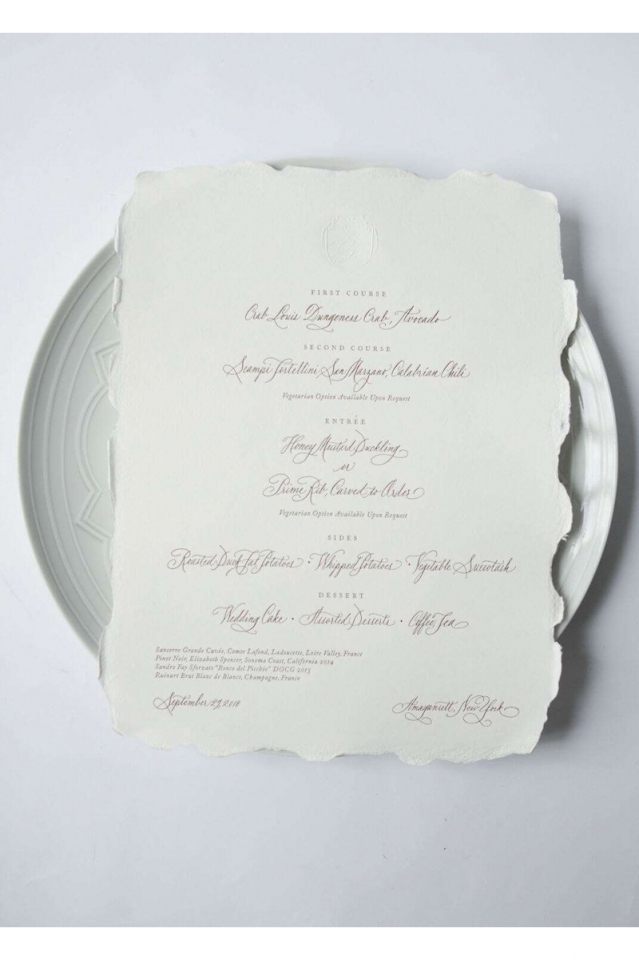 FIRST COURSE
Crab Louis Dungeness Crab, Avocado
SECOND COURSE
Scampi Tortellini San Marzano, Calabrian Chili
Vegetarian Option Available Upon Request
ENTRÉE
Honey Mustard Duckling
or
Prime Rib, Carved to Order
Vegetarian Option Available Upon Request
SIDES
Roasted Duck Fat Potatoes • Whipped Potatoes • Vegetable Succotash
DESSERT
Wedding Cake • Assorted Desserts • Coffee Tea
Sancerre Grande Cuvée, Comte Lafond, Ladoucette, Loire Valley, France
Pinot Noir, Elizabeth Spencer, Sonoma Coast, California 2014
Sandro Fay Sforzato "Ronco del Picchio" DOCG 2013
Ruinart Brut Blanc de Blancs, Champagne, France
September 29
Amagansett, New York